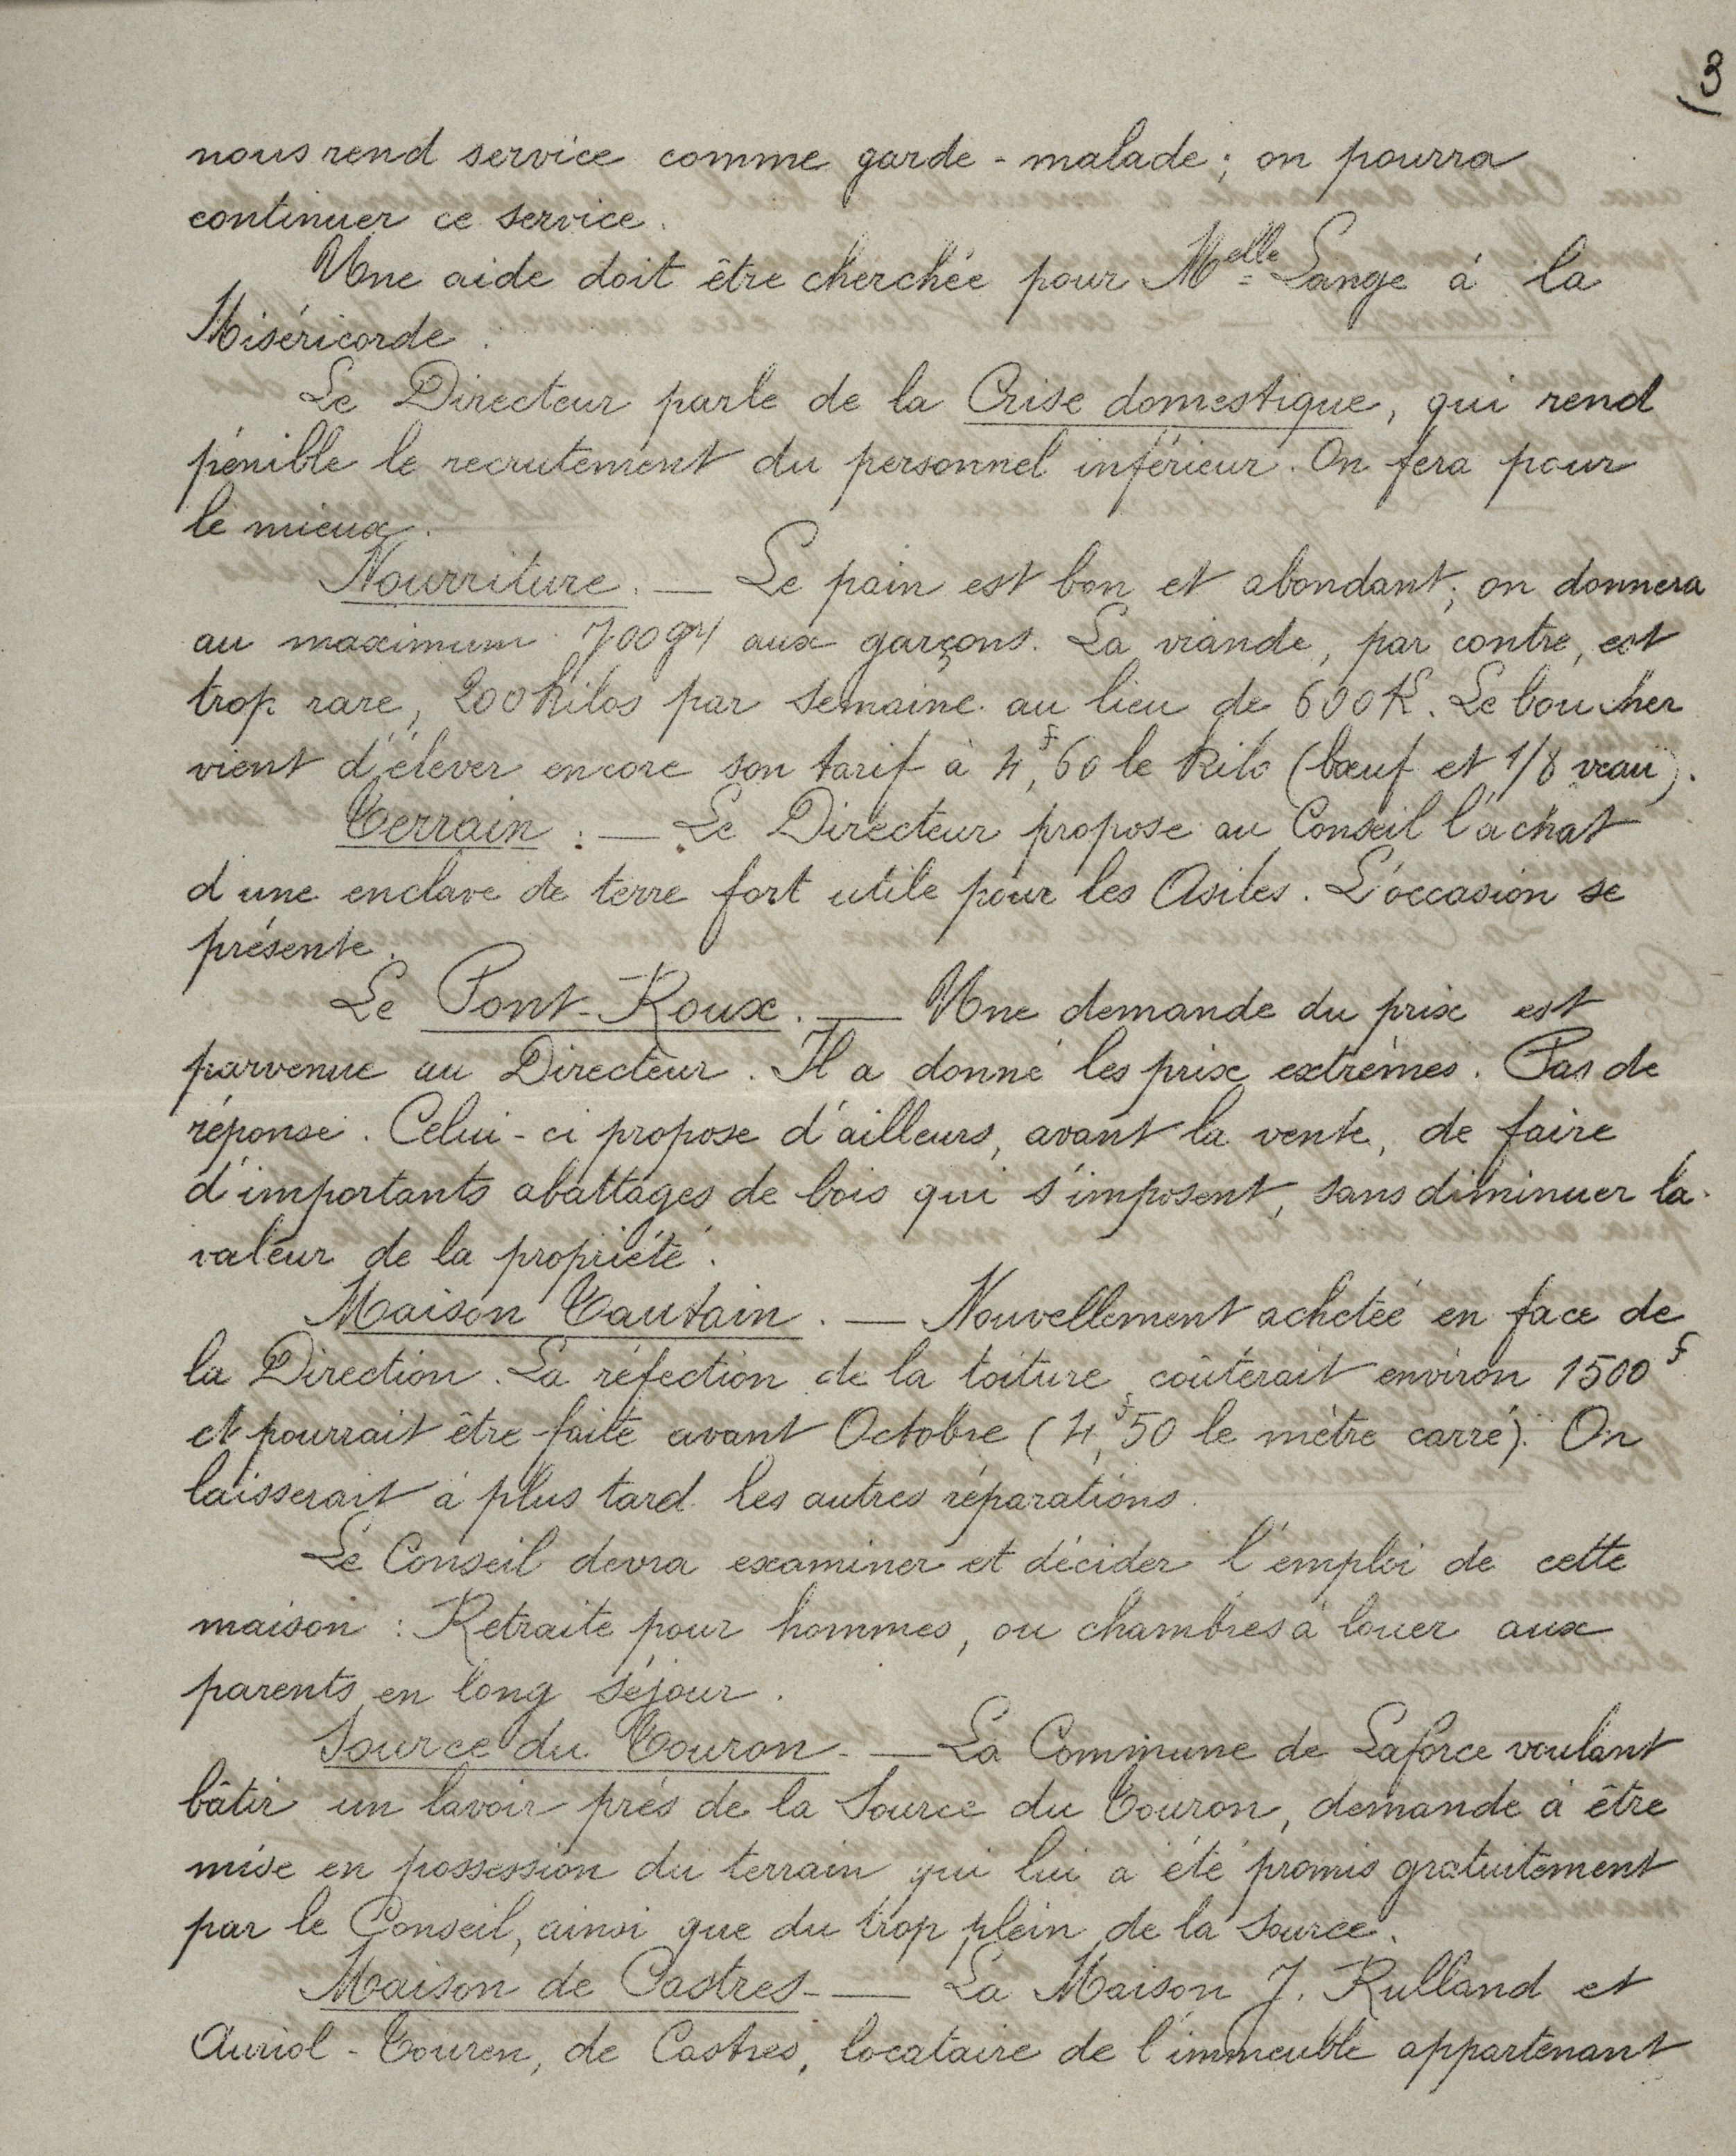 3
nous rend service comme garde-malade; on pourra
continuer ce service.
Une aide doit être cherchée pour Melle Lange à la
Miséricorde.
Le Directeur parle de la Crise domestique, qui rend
pénible le recrutement du personnel inférieur. On fera pour
le mieux.
Nourriture. — Le pain est bon et abondant; on donnera
au maximum 700 gr aux garçons. La viande, par contre, est
trop rare, 200 kilos par semaine au lieu de 600 K. Le boucher
vient d'élever encore son tarif à 4f,60 le kilo (bœuf et 1/8 veau).
Terrain : — Le Directeur propose au Conseil l'achat
d'une enclave de terre fort utile pour les Asiles. L'occasion se
présente.
Le Pont-Roux. — Une demande du prix est
parvenue au Directeur. Il a donné les prix extrêmes. Pas de
réponse. Celui-ci propose d'ailleurs, avant la vente, de faire
d'importants abattages de bois qui s'imposent, sans diminuer la
valeur de la propriété.
Maison Tautain. — Nouvellement achetée en face de
la Direction. La réfection de la toiture coûterait environ 1500f
et pourrait être faite avant Octobre (4f,50 le mètre carré). On
laisserait à plus tard les autres réparations.
Le Conseil devra examiner et décider l'emploi de cette
maison : Retraite pour hommes, ou chambres à louer aux
parents en long séjour.
Source du Touron. — La Commune de Laforce voulant
bâtir un lavoir près de la Source du Touron, demande à être
mise en possession du terrain qui lui a été promis gratuitement
par le Conseil, ainsi que du trop plein de la Source.
Maison de Castres. — La Maison J. Rulland et
Auriol-Touren, de Castres, locataire de l'immeuble appartenant